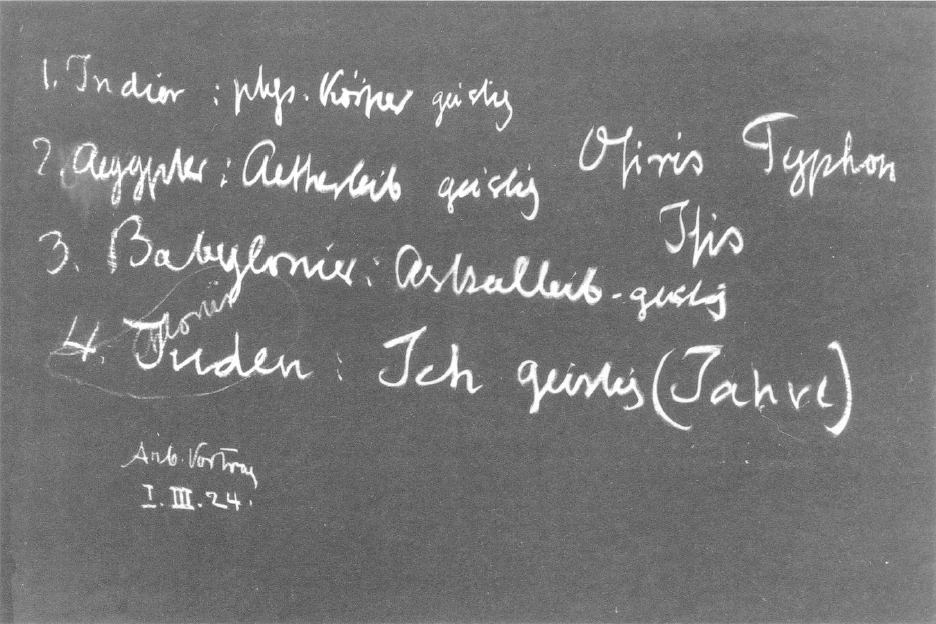 1. Indier : phys. Körper geistig
2. Aegypter : Aetherleib geistig
Osiris Typhon
Isis
3. Babylonier : Astralleib - geistig
4. Juden : Ich geistig (Jahve)
Arb. Vortrag
I. III. 24.